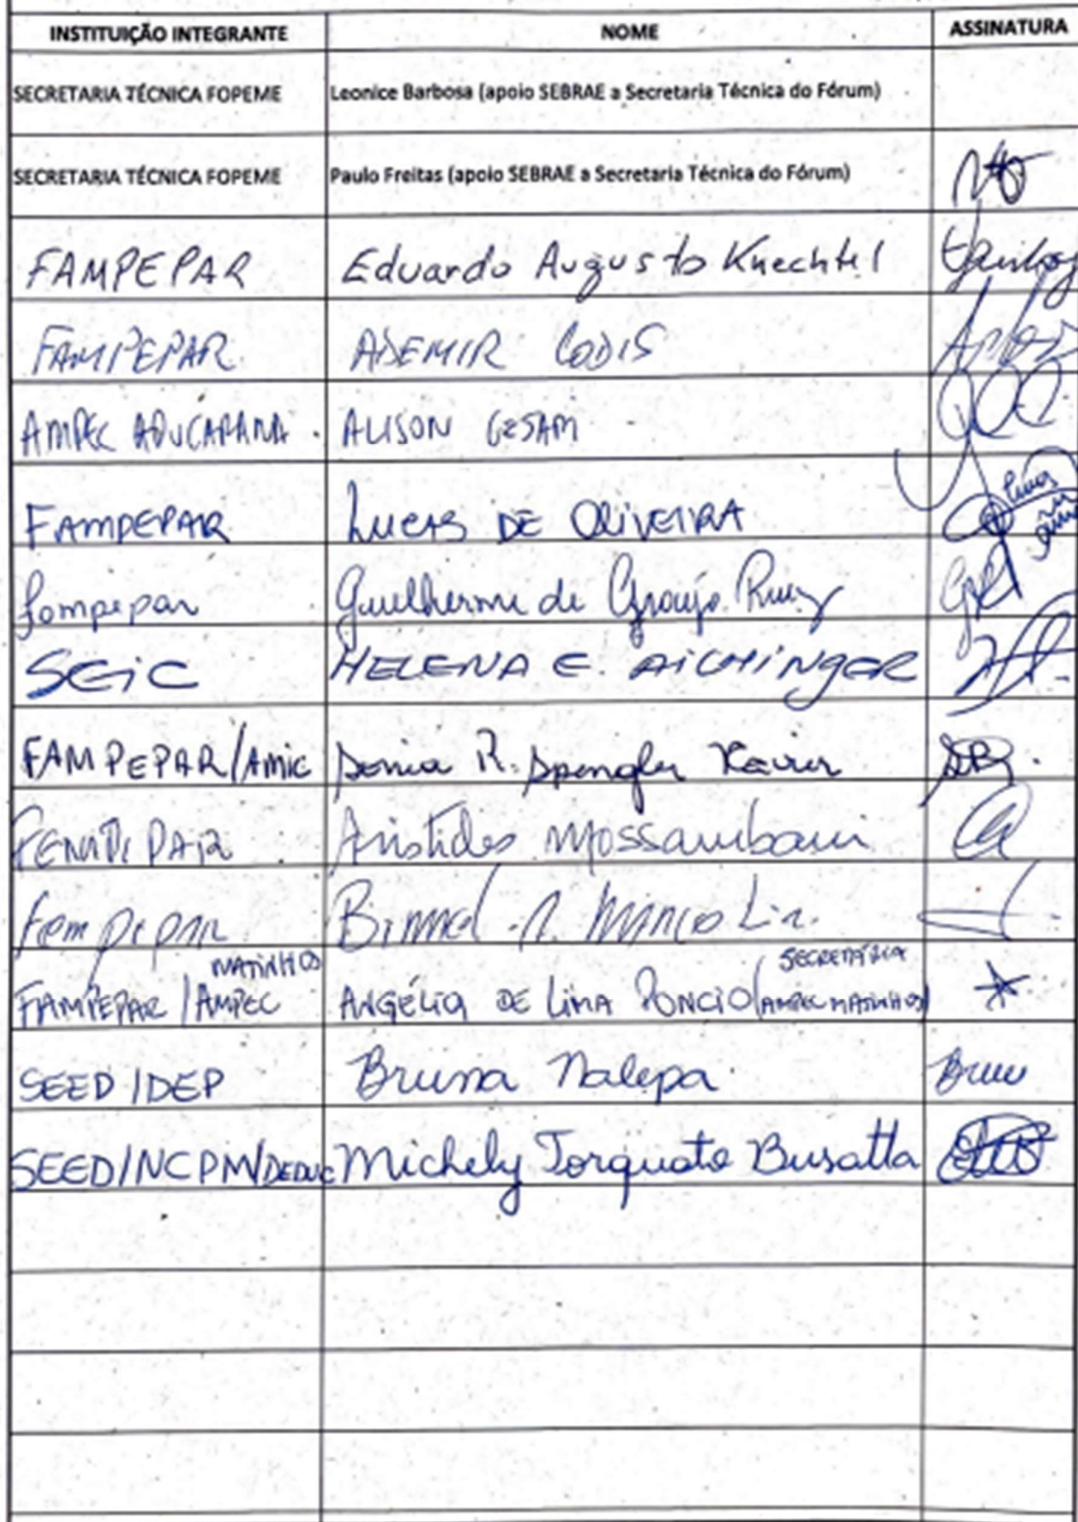 INSTITUIÇÃO INTEGRANTE NOME ASSINATURA
SECRETARIA TÉCNICA FOPEME Leonice Barbosa (apoio SEBRAE a Secretaria Técnica do Fórum)
SECRETARIA TÉCNICA FOPEME Paulo Freitas (apoio SEBRAE a Secretaria Técnica do Fórum)
FAMPEPAR Eduardo Augusto Knechtel
FAMPEPAR ADEMIR
AMPEC APUCARANA ALISON
FAMPEPAR LUCAS DE OLIVEIRA
fampepar Guilherme de Araújo Ruiz
SEIC HELENA E. AICHINGER
FAMPEPAR/AMIC Sonia R. Spengler Xavier
Aristides Mossambani
MATINHOS SECRETÁRIA
FAMPEPAR / AMPEC ANGÉLICA DE LIMA PONCIO (AMPEC MATINHOS)
SEED/DEP Bruna Nalepa Bru
SEED/NCPM/DEDUC Michely Torquato Busatta